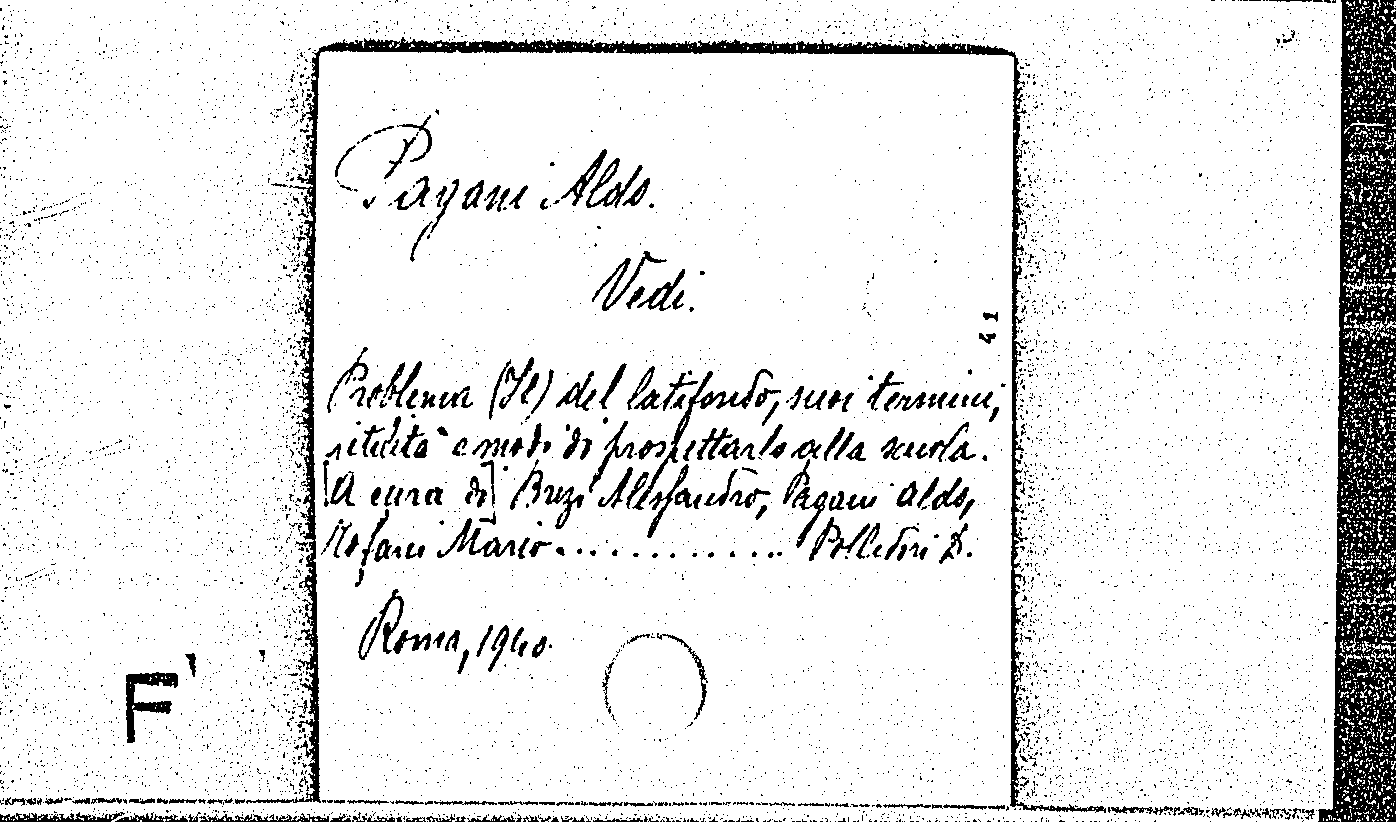 Pagani Aldo.
Vedi.
41
Problema (Il) del latifondo, suoi termini,
utilità e modi di prospettarlo alla scuola.
[A cura di] Brizi Alessandro, Pagani Aldo,
Mario............ Polledori D.
Roma, 1940.
F